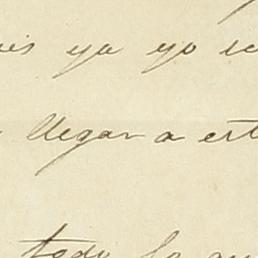 ya yo
llegar a est
todo lo qu